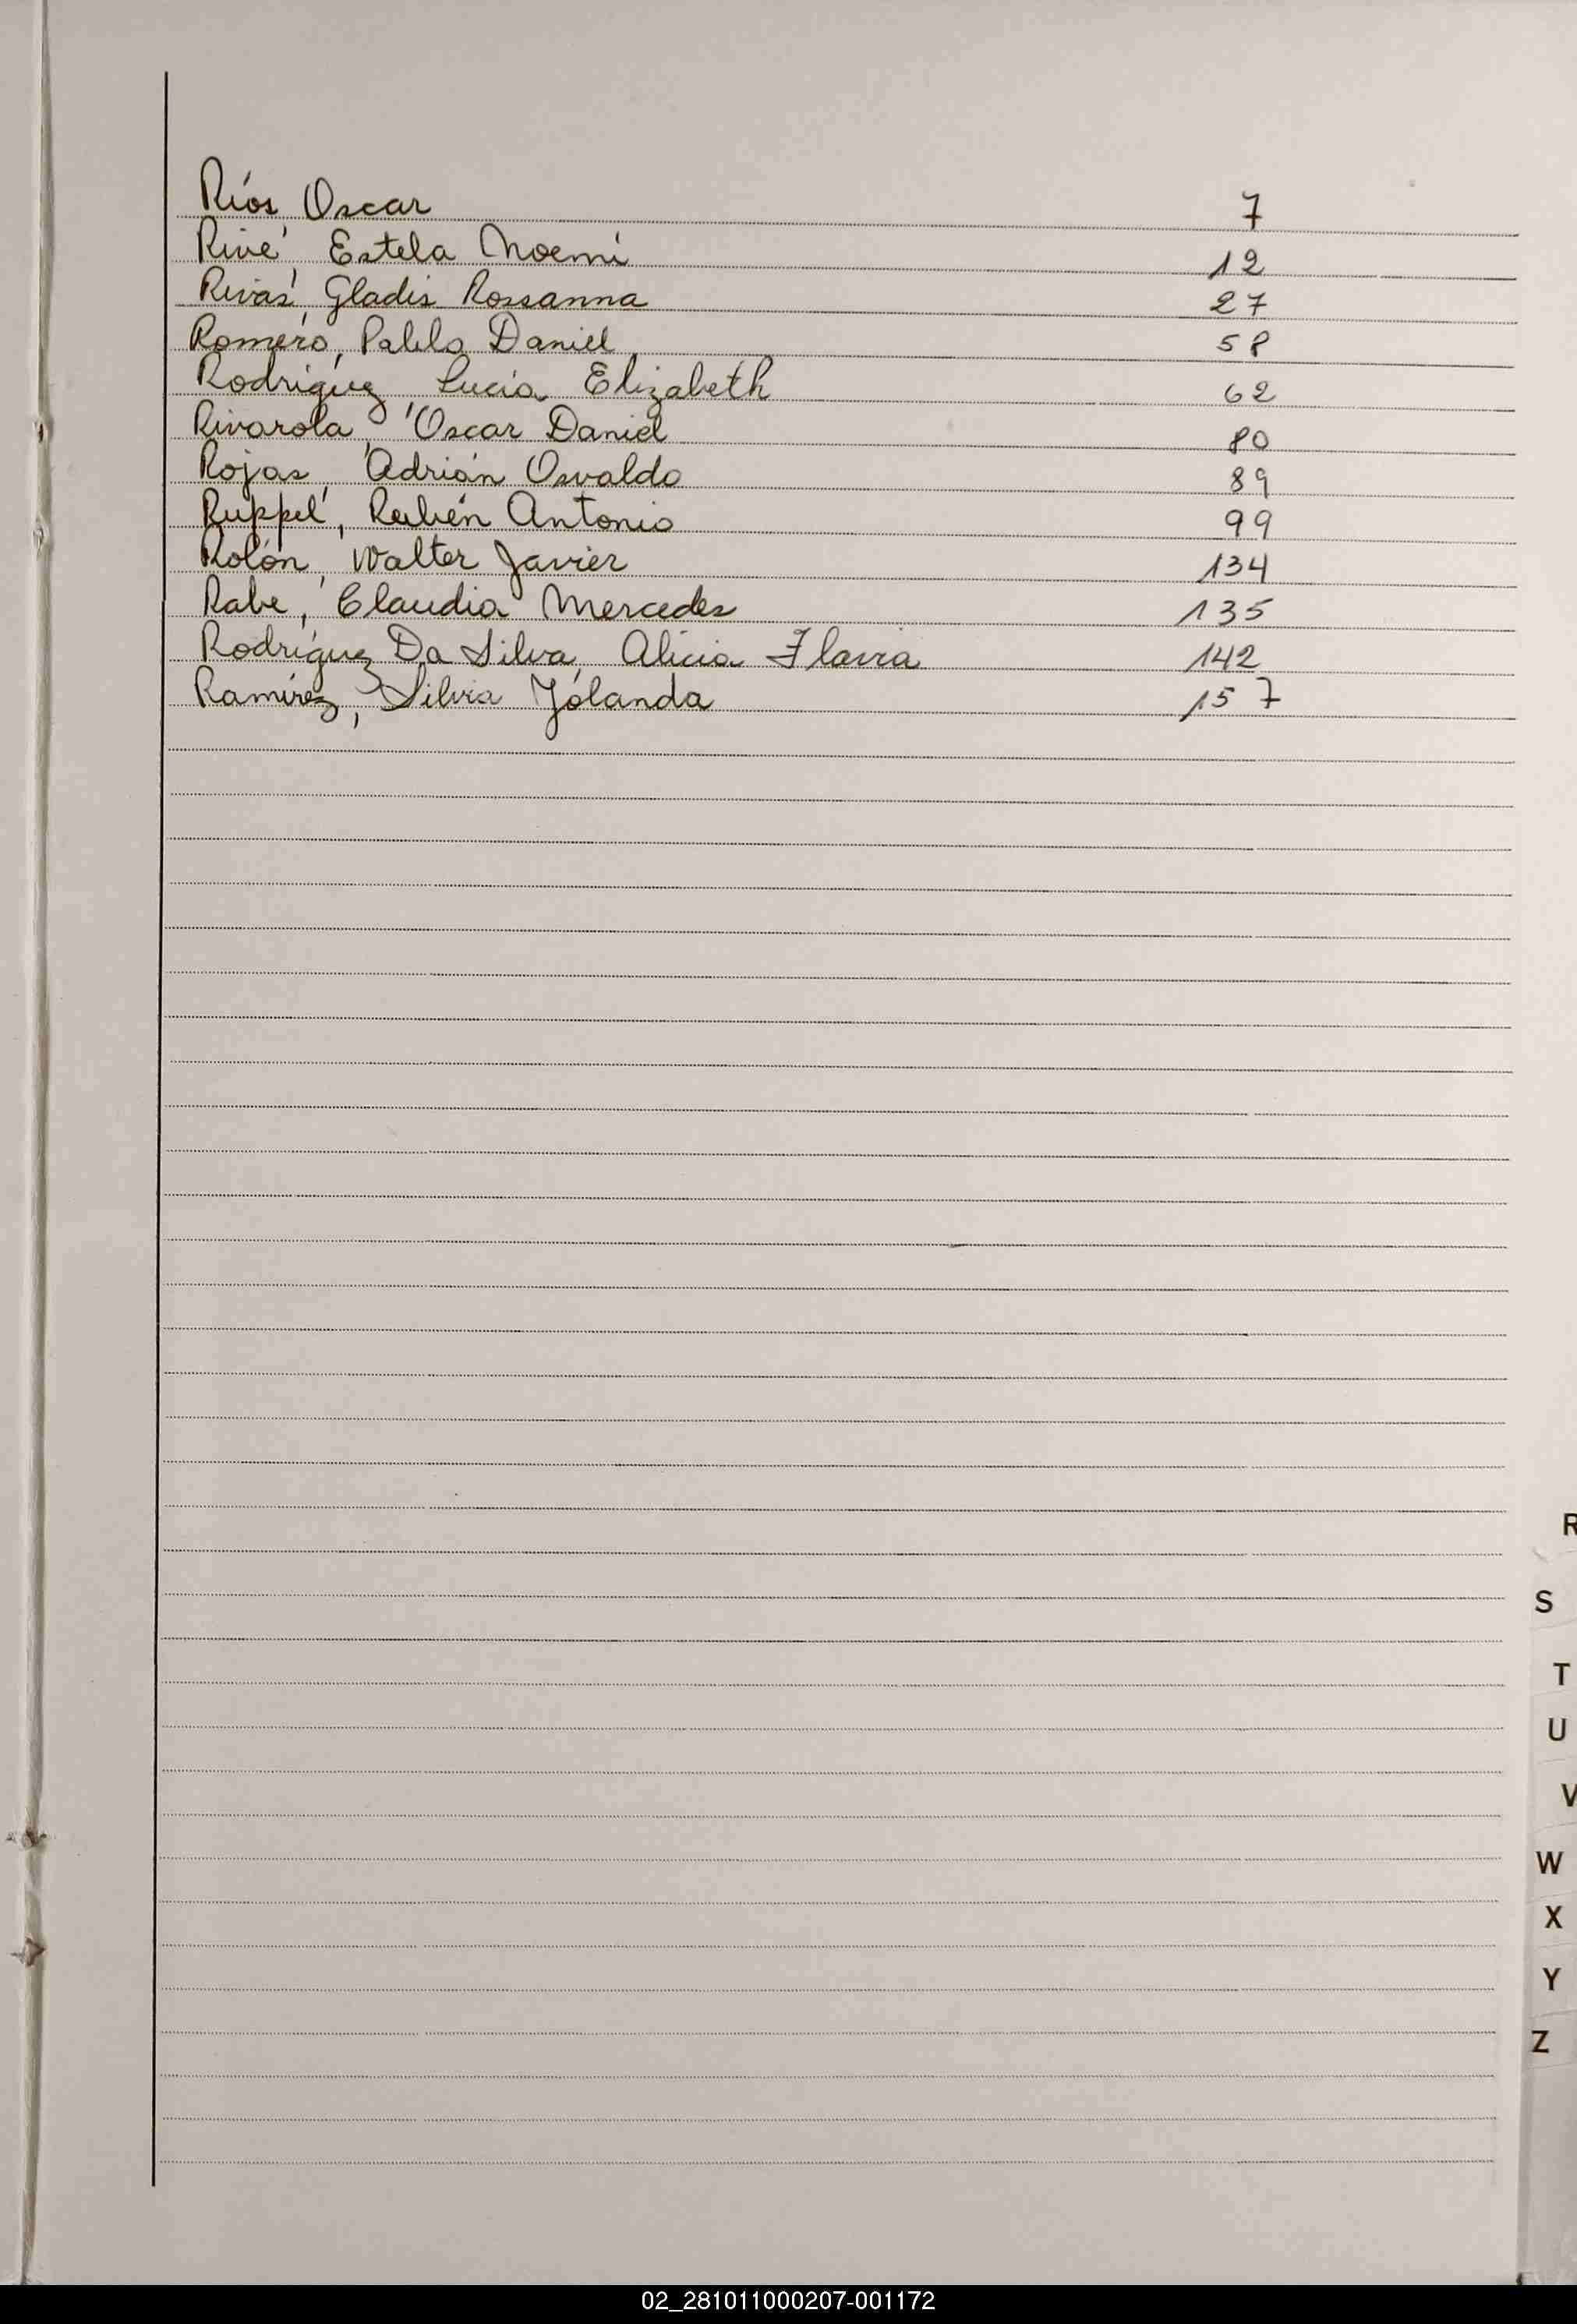 Ríos, Oscar 7
Rivé, Estela Noemí 12
Rivas, Gladis Rossanna 27
Romero, Pablo Daniel 58
Rodríguez, Lucía Elizabeth 62
Rivarola, Oscar Daniel 80
Rojas, Adrián Osvaldo 89
Ruppel, Rubén Antonio 99
Rolón, Walter Javier 134
Rabe, Claudia Mercedes 135
Rodríguez Da Silva, Alicia Flavia 142
Ramírez, Silvia Yolanda 157
R
S
T
U
V
W
X
Y
Z
02_281011000207-001172